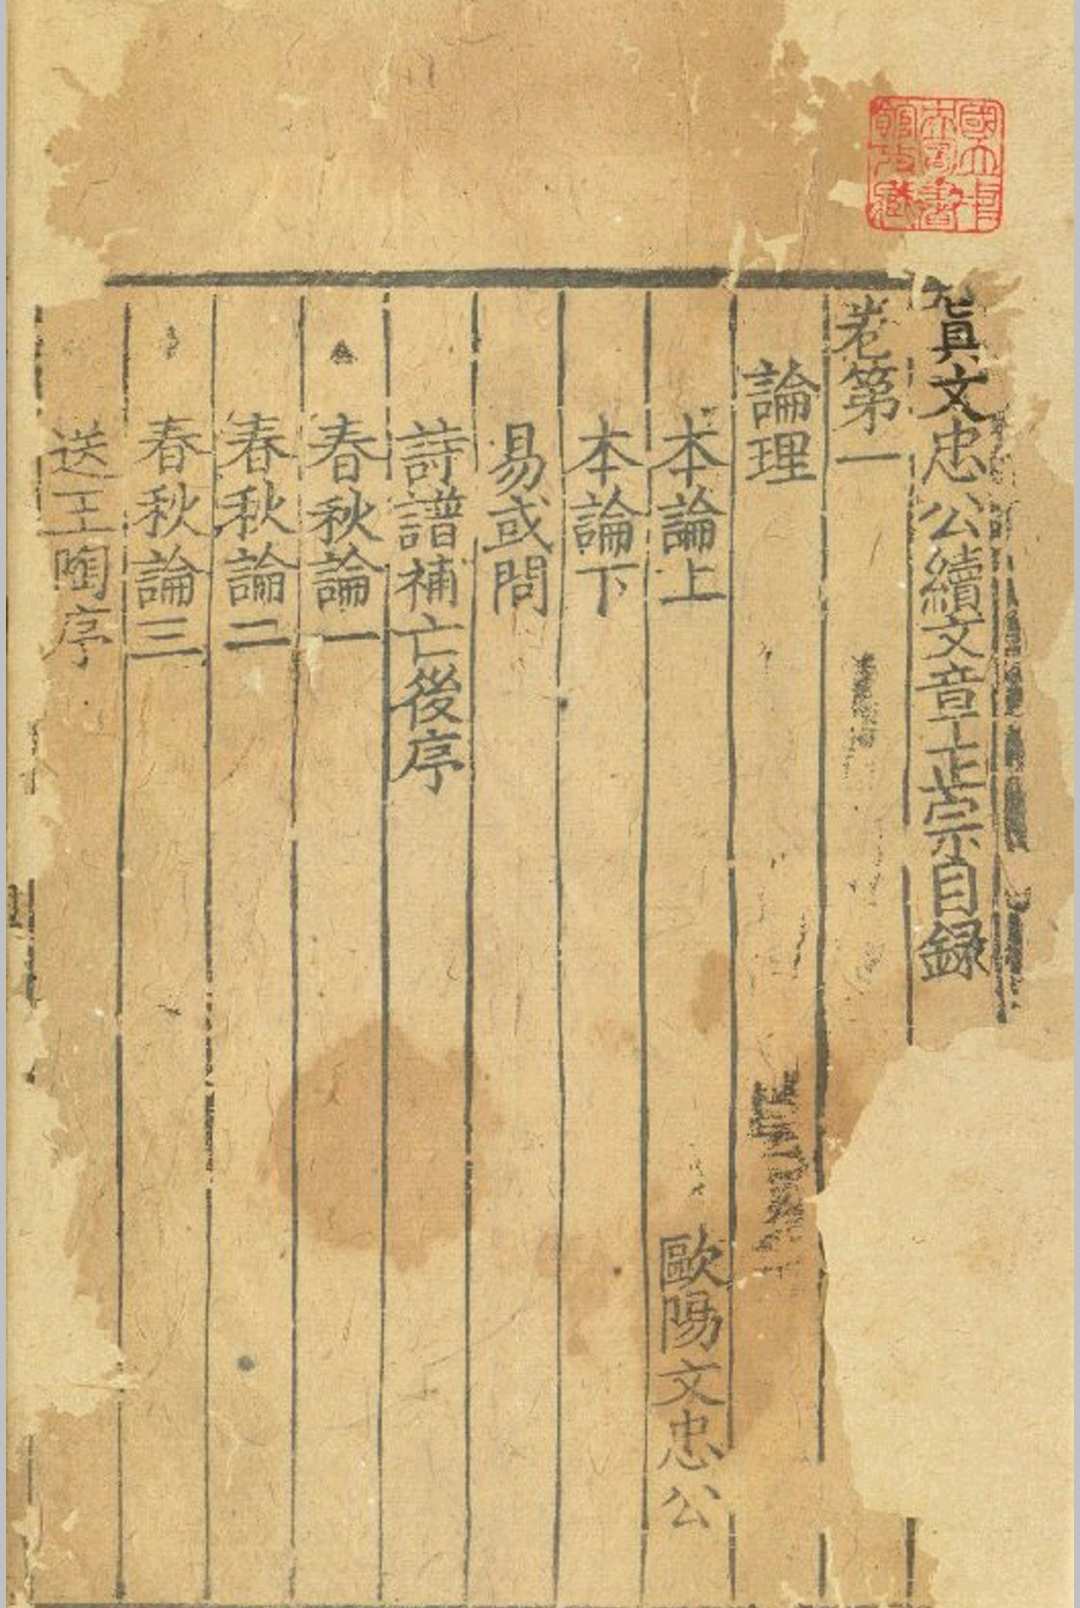 國立中
央圖書
館收藏
真文忠公續文章正宗目録
卷第一
論理
本論上 歐陽文忠公
本論下
易或問
詩譜補亡後序
春秋論一
春秋論二
春秋論三
送王陶序